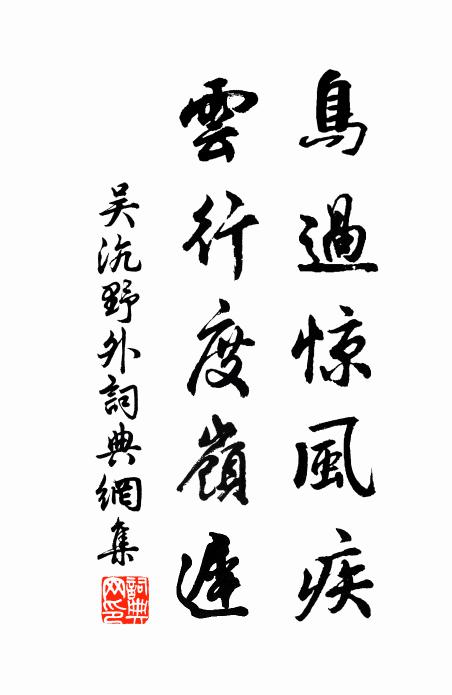 鳥過惊風疾
雲行度嶺遲
吴沆野外詞典網集
詞典网印